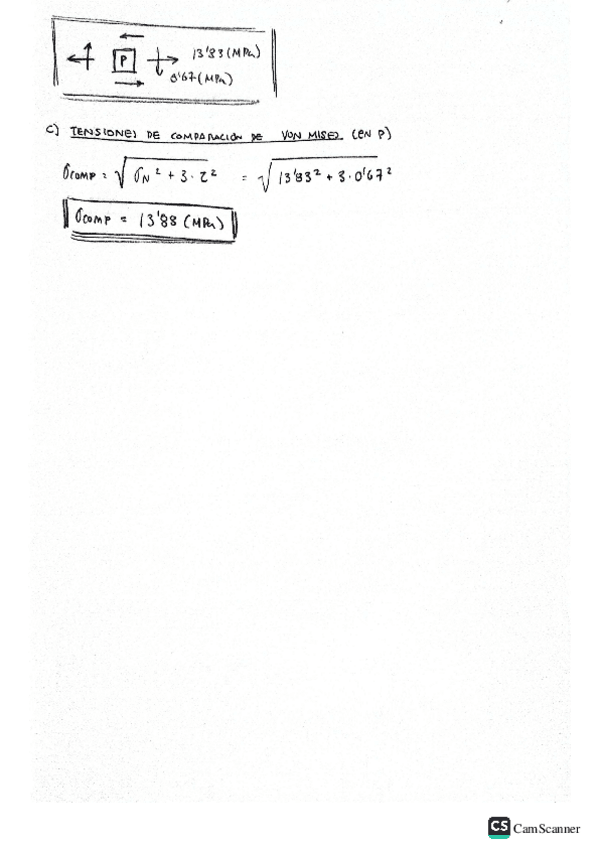 P
13'83 (MPa)
0'67 (MPa)
c) TENSIONES DE COMPARACIÓN DE VON MISES (EN P)
σcomp = √σN² + 3·τ² = √13'83² + 3·0'67²
σcomp = 13'88 (MPa)
CS CamScanner